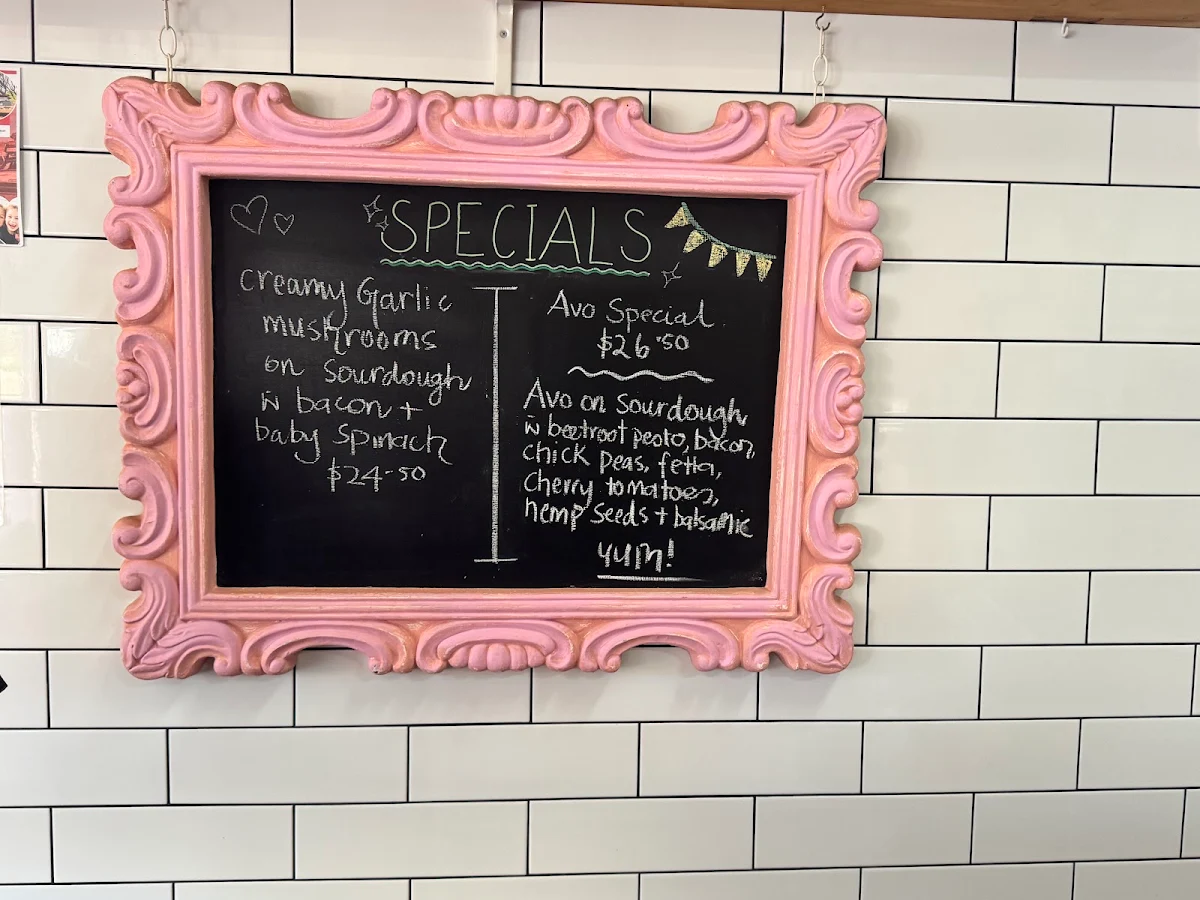 SPECIALS
creamy Garlic
mushrooms
on Sourdough
w̄ bacon +
baby Spinach
$24.50
Avo Special
$26.50
Avo on Sourdough
w̄ beetroot pesto, bacon,
chick peas, fetta,
cherry tomatoes,
hemp seeds + balsamic
yum!